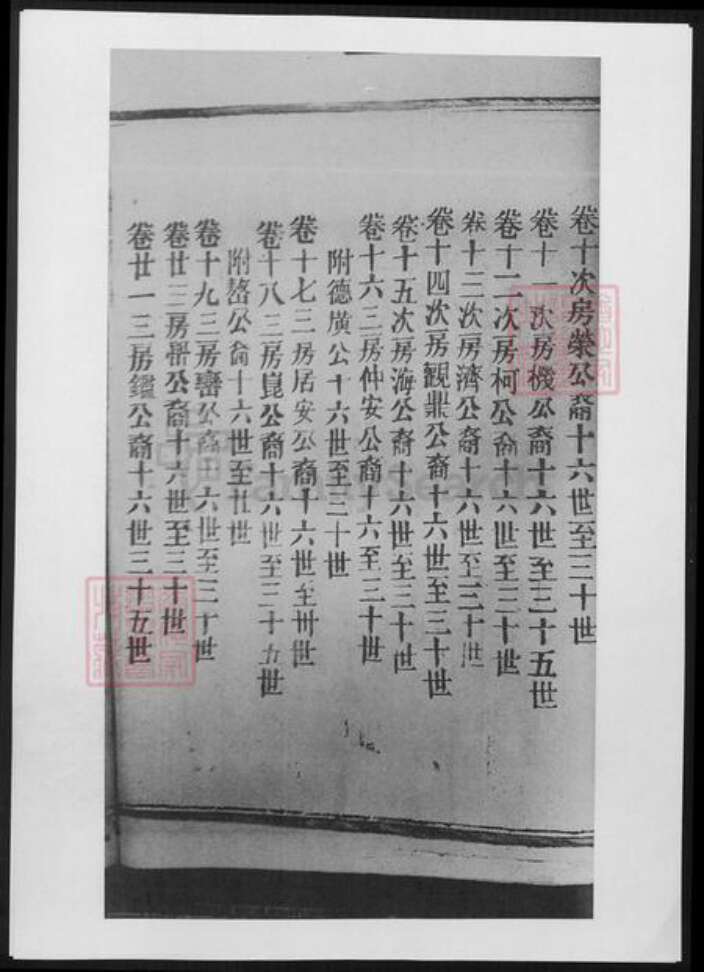 卷十次房榮公裔十六世至三十世
卷十一次房機公裔十六世至三十五世
卷十二次房柯公裔十六世至三十世
卷十三次房濟公裔十六世至三十世
卷十四次房観鼎公裔十六世至三十世
卷十五次房海公裔十六世至三十世
卷十六三房仲安公裔十六至三十世
附德廣公十六世至三十世
卷十七三房居安公裔十六世至卅世
卷十八三房崑公裔十六世至三十五世
附嶅公裔十六世至廿世
卷十九三房巒公裔十六世至三十世
卷廿三房公裔十六世至三十世
卷廿一三房鑑公裔十六世三十五世